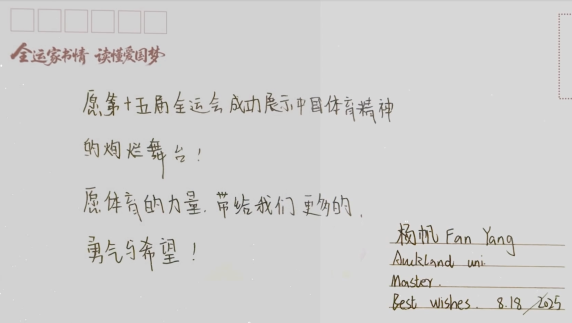 全运家书情 读懂爱国梦
愿第十五届全运会成功展示中国体育精神
的绚烂舞台！
愿体育的力量，带给我们更多的，
勇气与希望！
杨帆 Fan Yang
Auckland uni
Master.
Best wishes. 8.18/2025